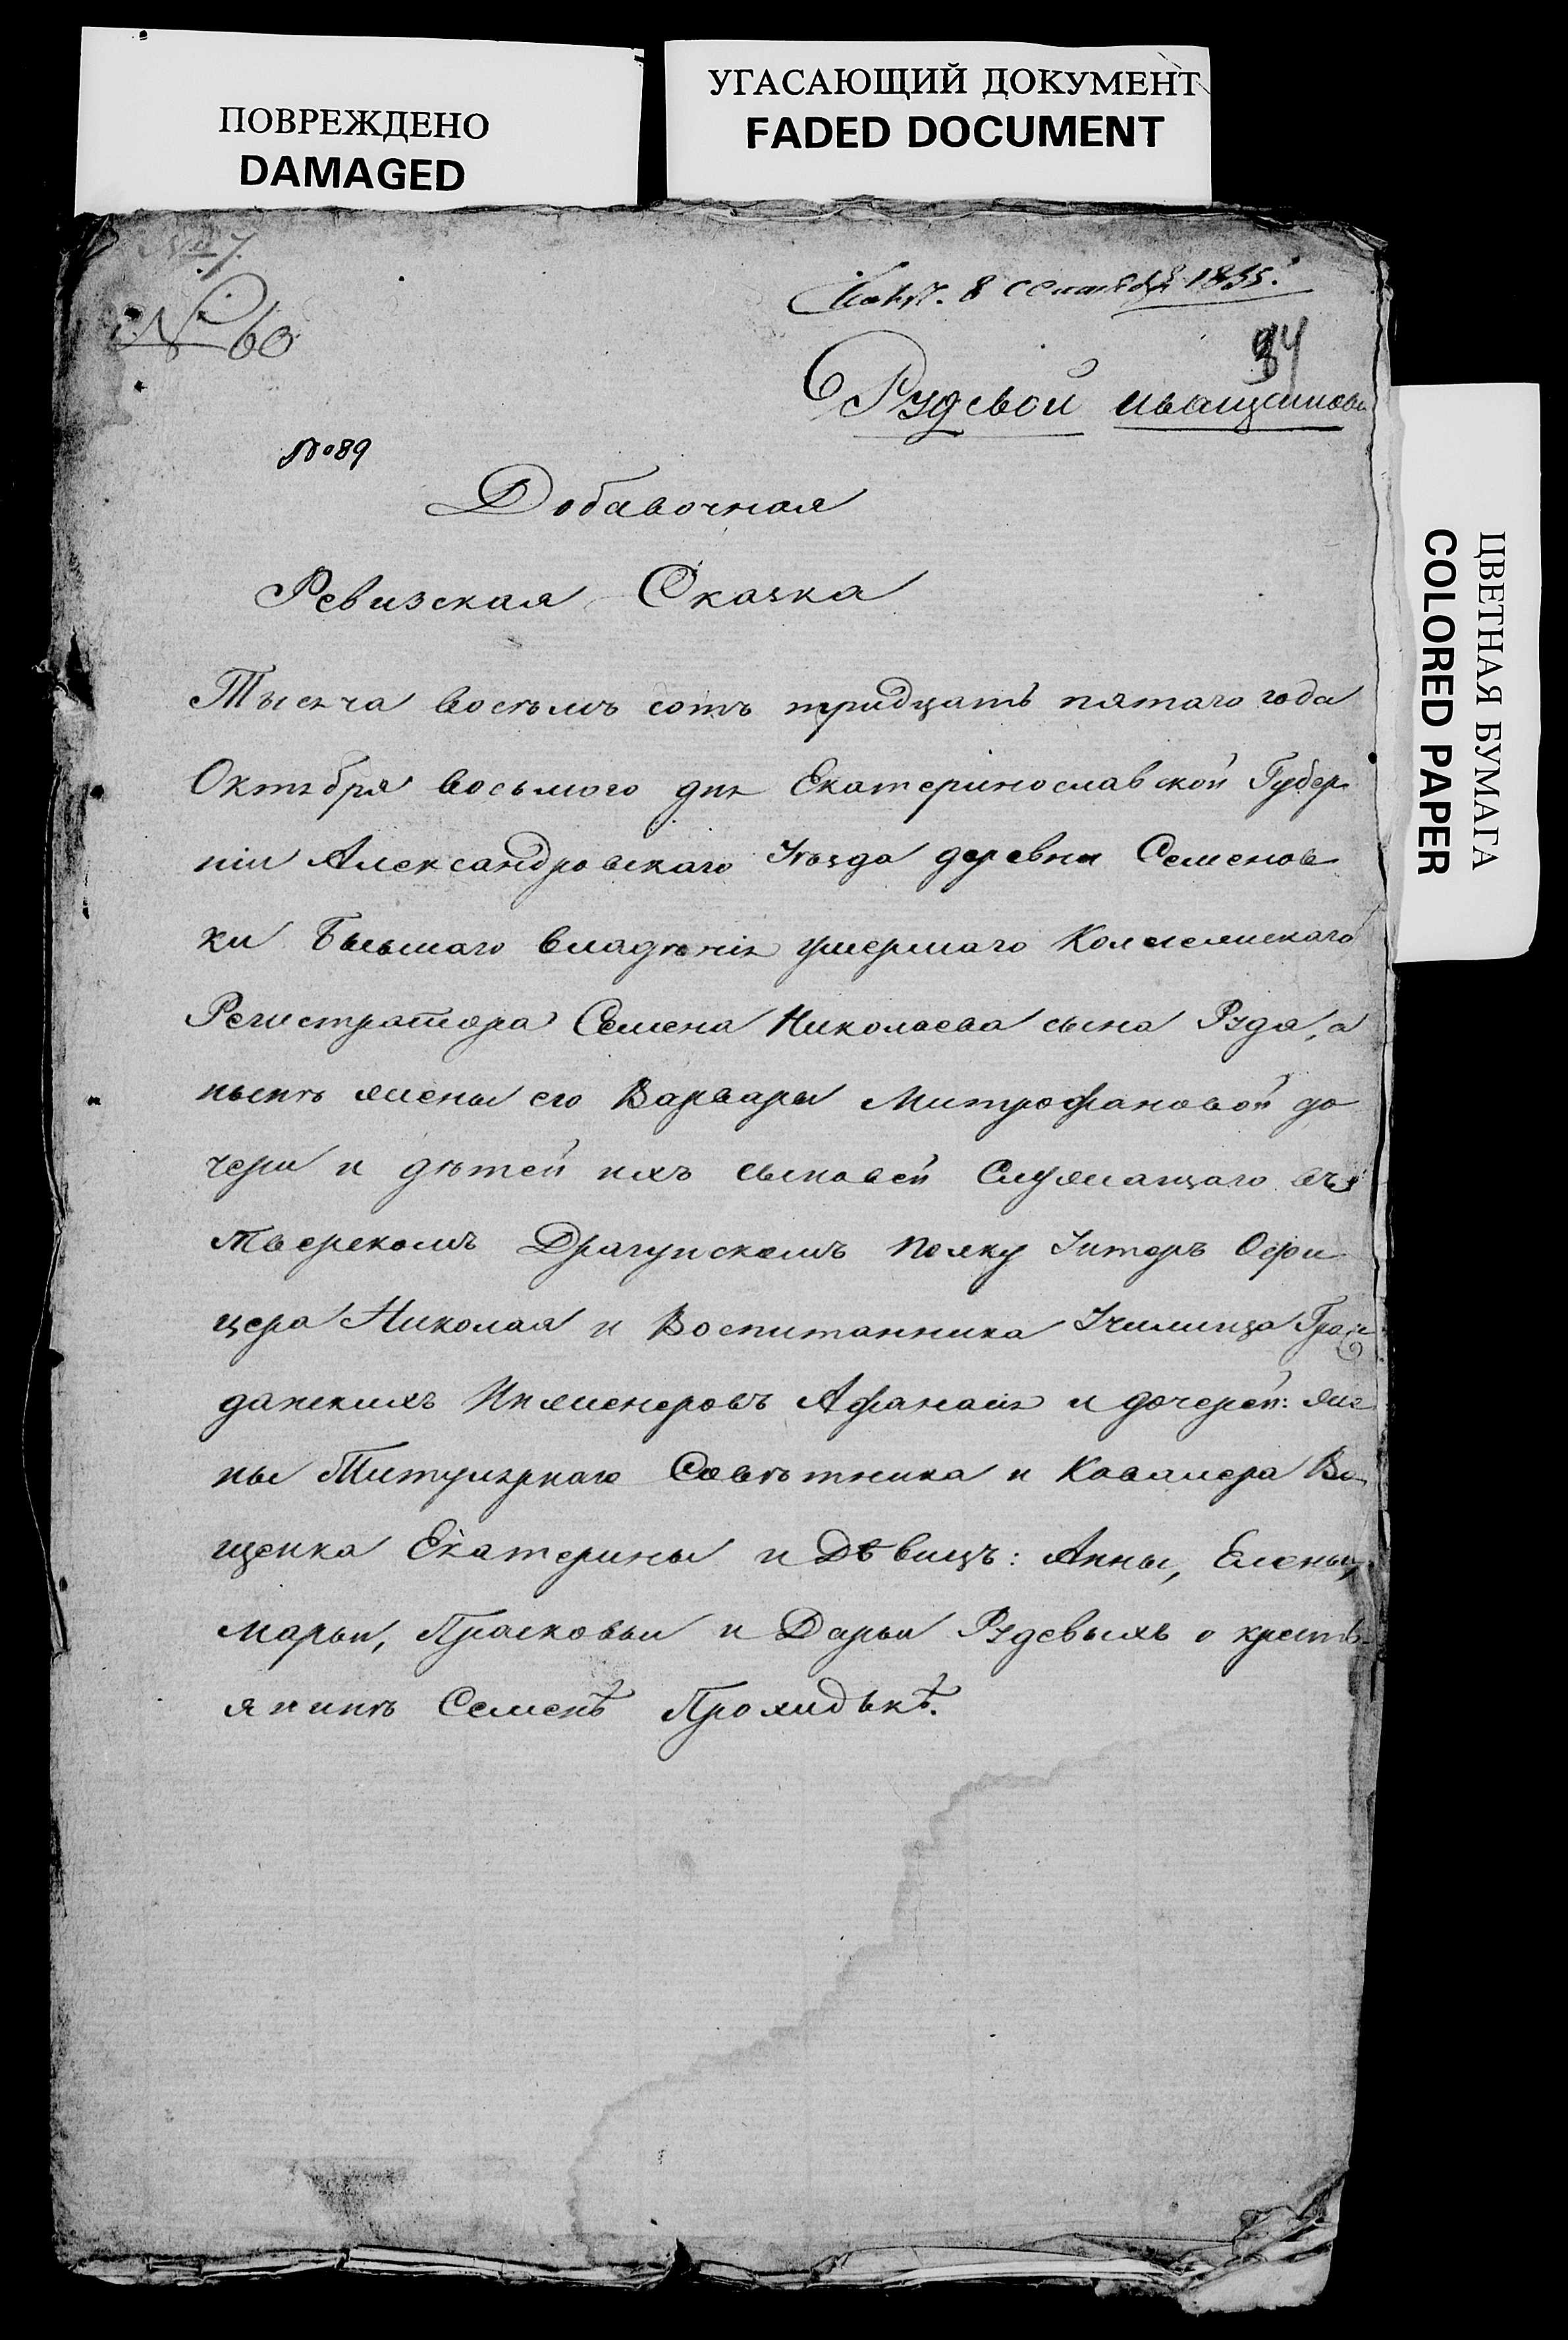 ПОВРЕЖДЕНО
DAMAGED
УГАСАЮЩИЙ ДОКУМЕНТ
FADED DOCUMENT
ЦВЕТНАЯ БУМАГА
COLORED PAPER
№ 7.
№ 60
8 Сентября 1835.
94
Рудевой
№ 89
Добавочная
Ревизская Сказка
Тысяча восемь сотъ тридцать пятаго года
Октября восьмого дня Екатеринославской Губер
ніи Александровскаго Уѣзда деревни Семенов
ки бывшаго владѣнія умершаго Коллежскаго
Регистратора Семена Николаева сына Рудя, а
нынѣ жены его Варвары Митрофановой до
чери и дѣтей ихъ сыновей Служащаго въ
Тверскомъ Драгунскомъ Полку Унтеръ Офи
цера Николая и Воспитанника Училища Граж
данскихъ Инженеровъ Афанасія и дочерей: же
ны Титулярнаго Совѣтника и Кавалера Ва
щенка Екатерины и Дѣвицъ: Анны, Елены,
Марьи, Прасковьи и Дарьи Рудевыхъ о кресть
янинѣ Семенѣ Прохидькѣ.